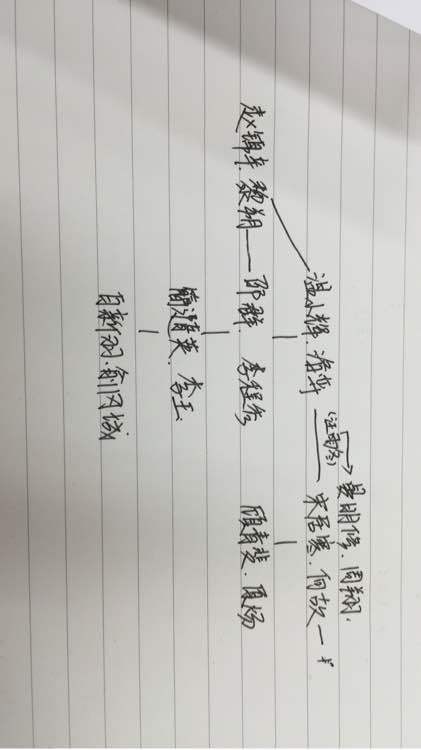 晏明修.周翔.
(汪雨冬)
温小辉.洛羿——宋居寒.何故—
赵锦辛.黎朔——邵群.李程秀 顾青裴.原炀
简隋英.李玉
白新羽.俞风城